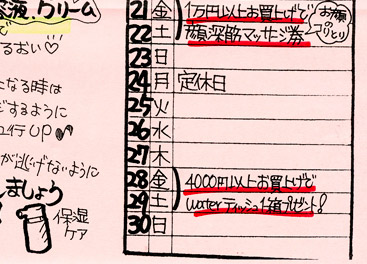 容液.クリーム
で
るおい♡
なる時は
どするように
ユ行UP
が逃げないように
ましょう
保湿
ケア
21 金
22 土
1万円以上お買上げで
顔深筋マッサージ券
お顔
のり
とり
23 日
24 月 定休日
25 火
26 水
27 木
28 金
29 土
4000円以上お買上げで
waterティッシュ1箱プレゼント!
30 日